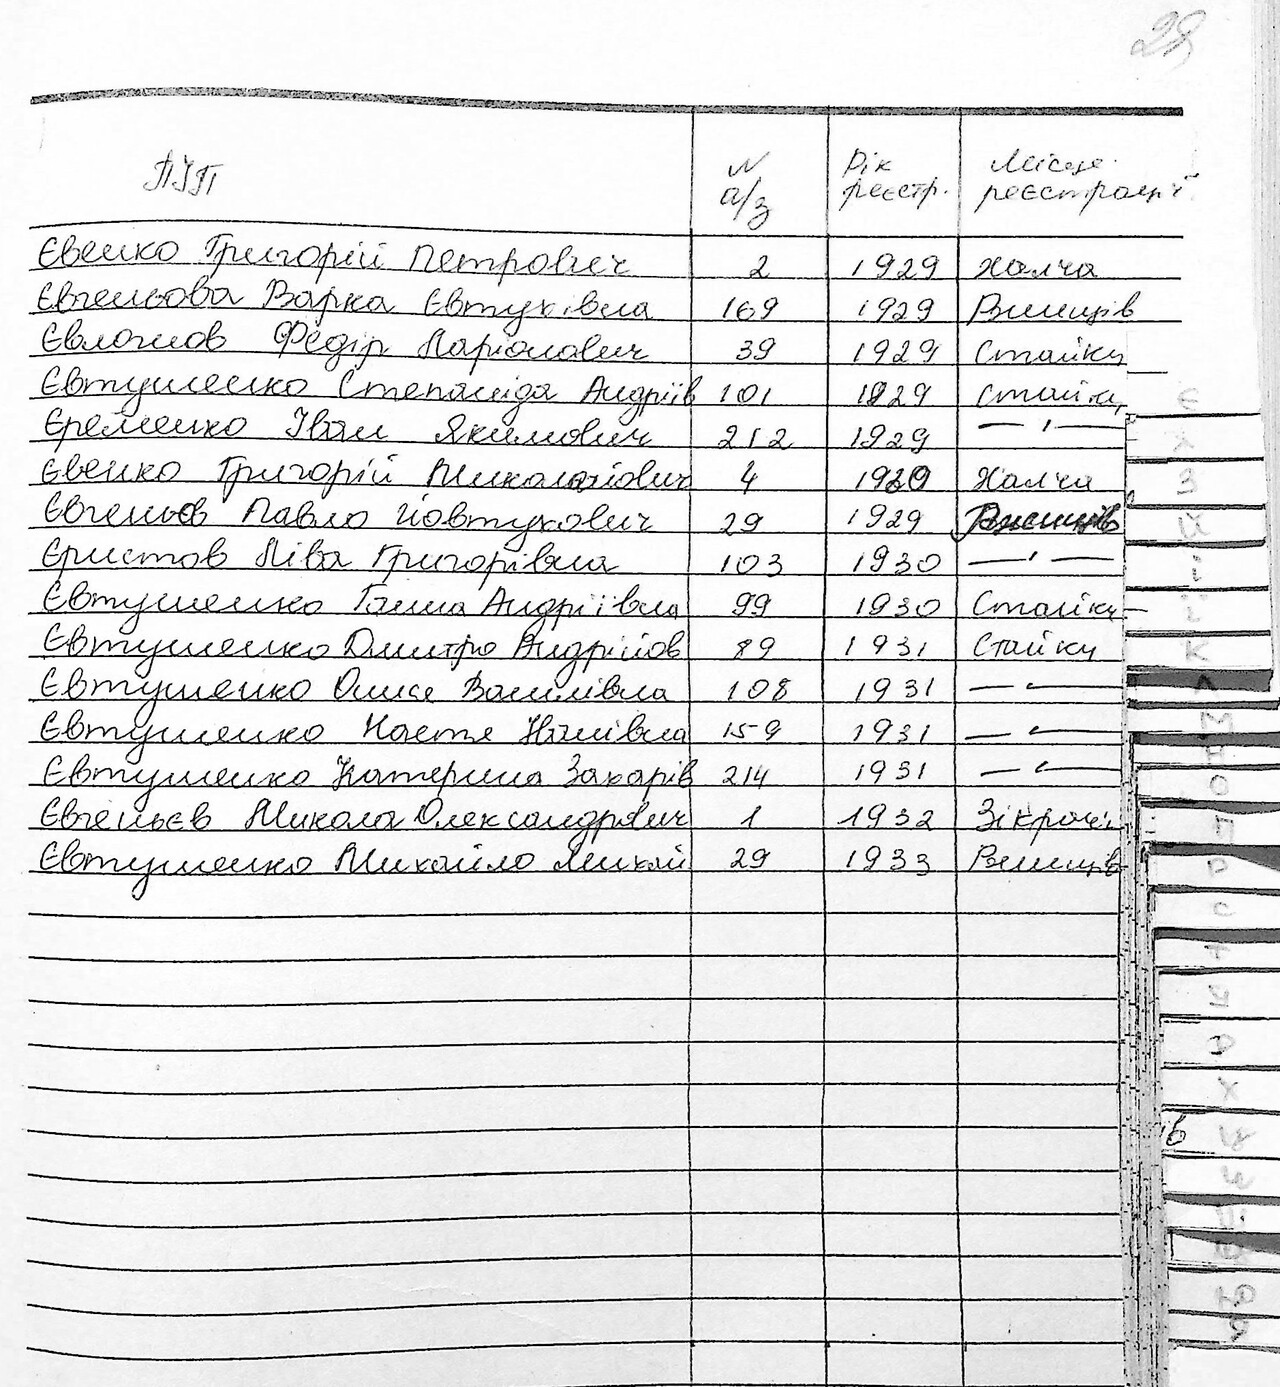 28
ПІП N а/з Рік реєстр. Місце реєстрації
Євенко Григорій Петрович 2 1929 Халча
Євгеньєва Варка Євтухівна 169 1929 Ржищів
Євлогиов Федір Ларіонович 39 1929 Стайки
Євтушенко Степанида Андріїв 101 1929 Стайки
Єременко Іван Якимович 212 1929 — " —
Євенко Григорій Миколайович 4 1930 Халча
Євгеньєв Павло Йовтухович 29 1929 Ржищів
Єристов Ліва Григорівна 103 1930 — " —
Євтушенко Ганна Андріївна 99 1930 Стайки
Євтушенко Дмитро Андрійов 89 1931 Стайки
Євтушенко Василівна 108 1931 — " —
Євтушенко Настя 159 1931 — " —
Євтушенко Катерина Захарів 214 1931 — " —
Євгеньєв Микола Олександрович 1 1932
Євтушенко Михайло Михай 29 1933 Ржищів